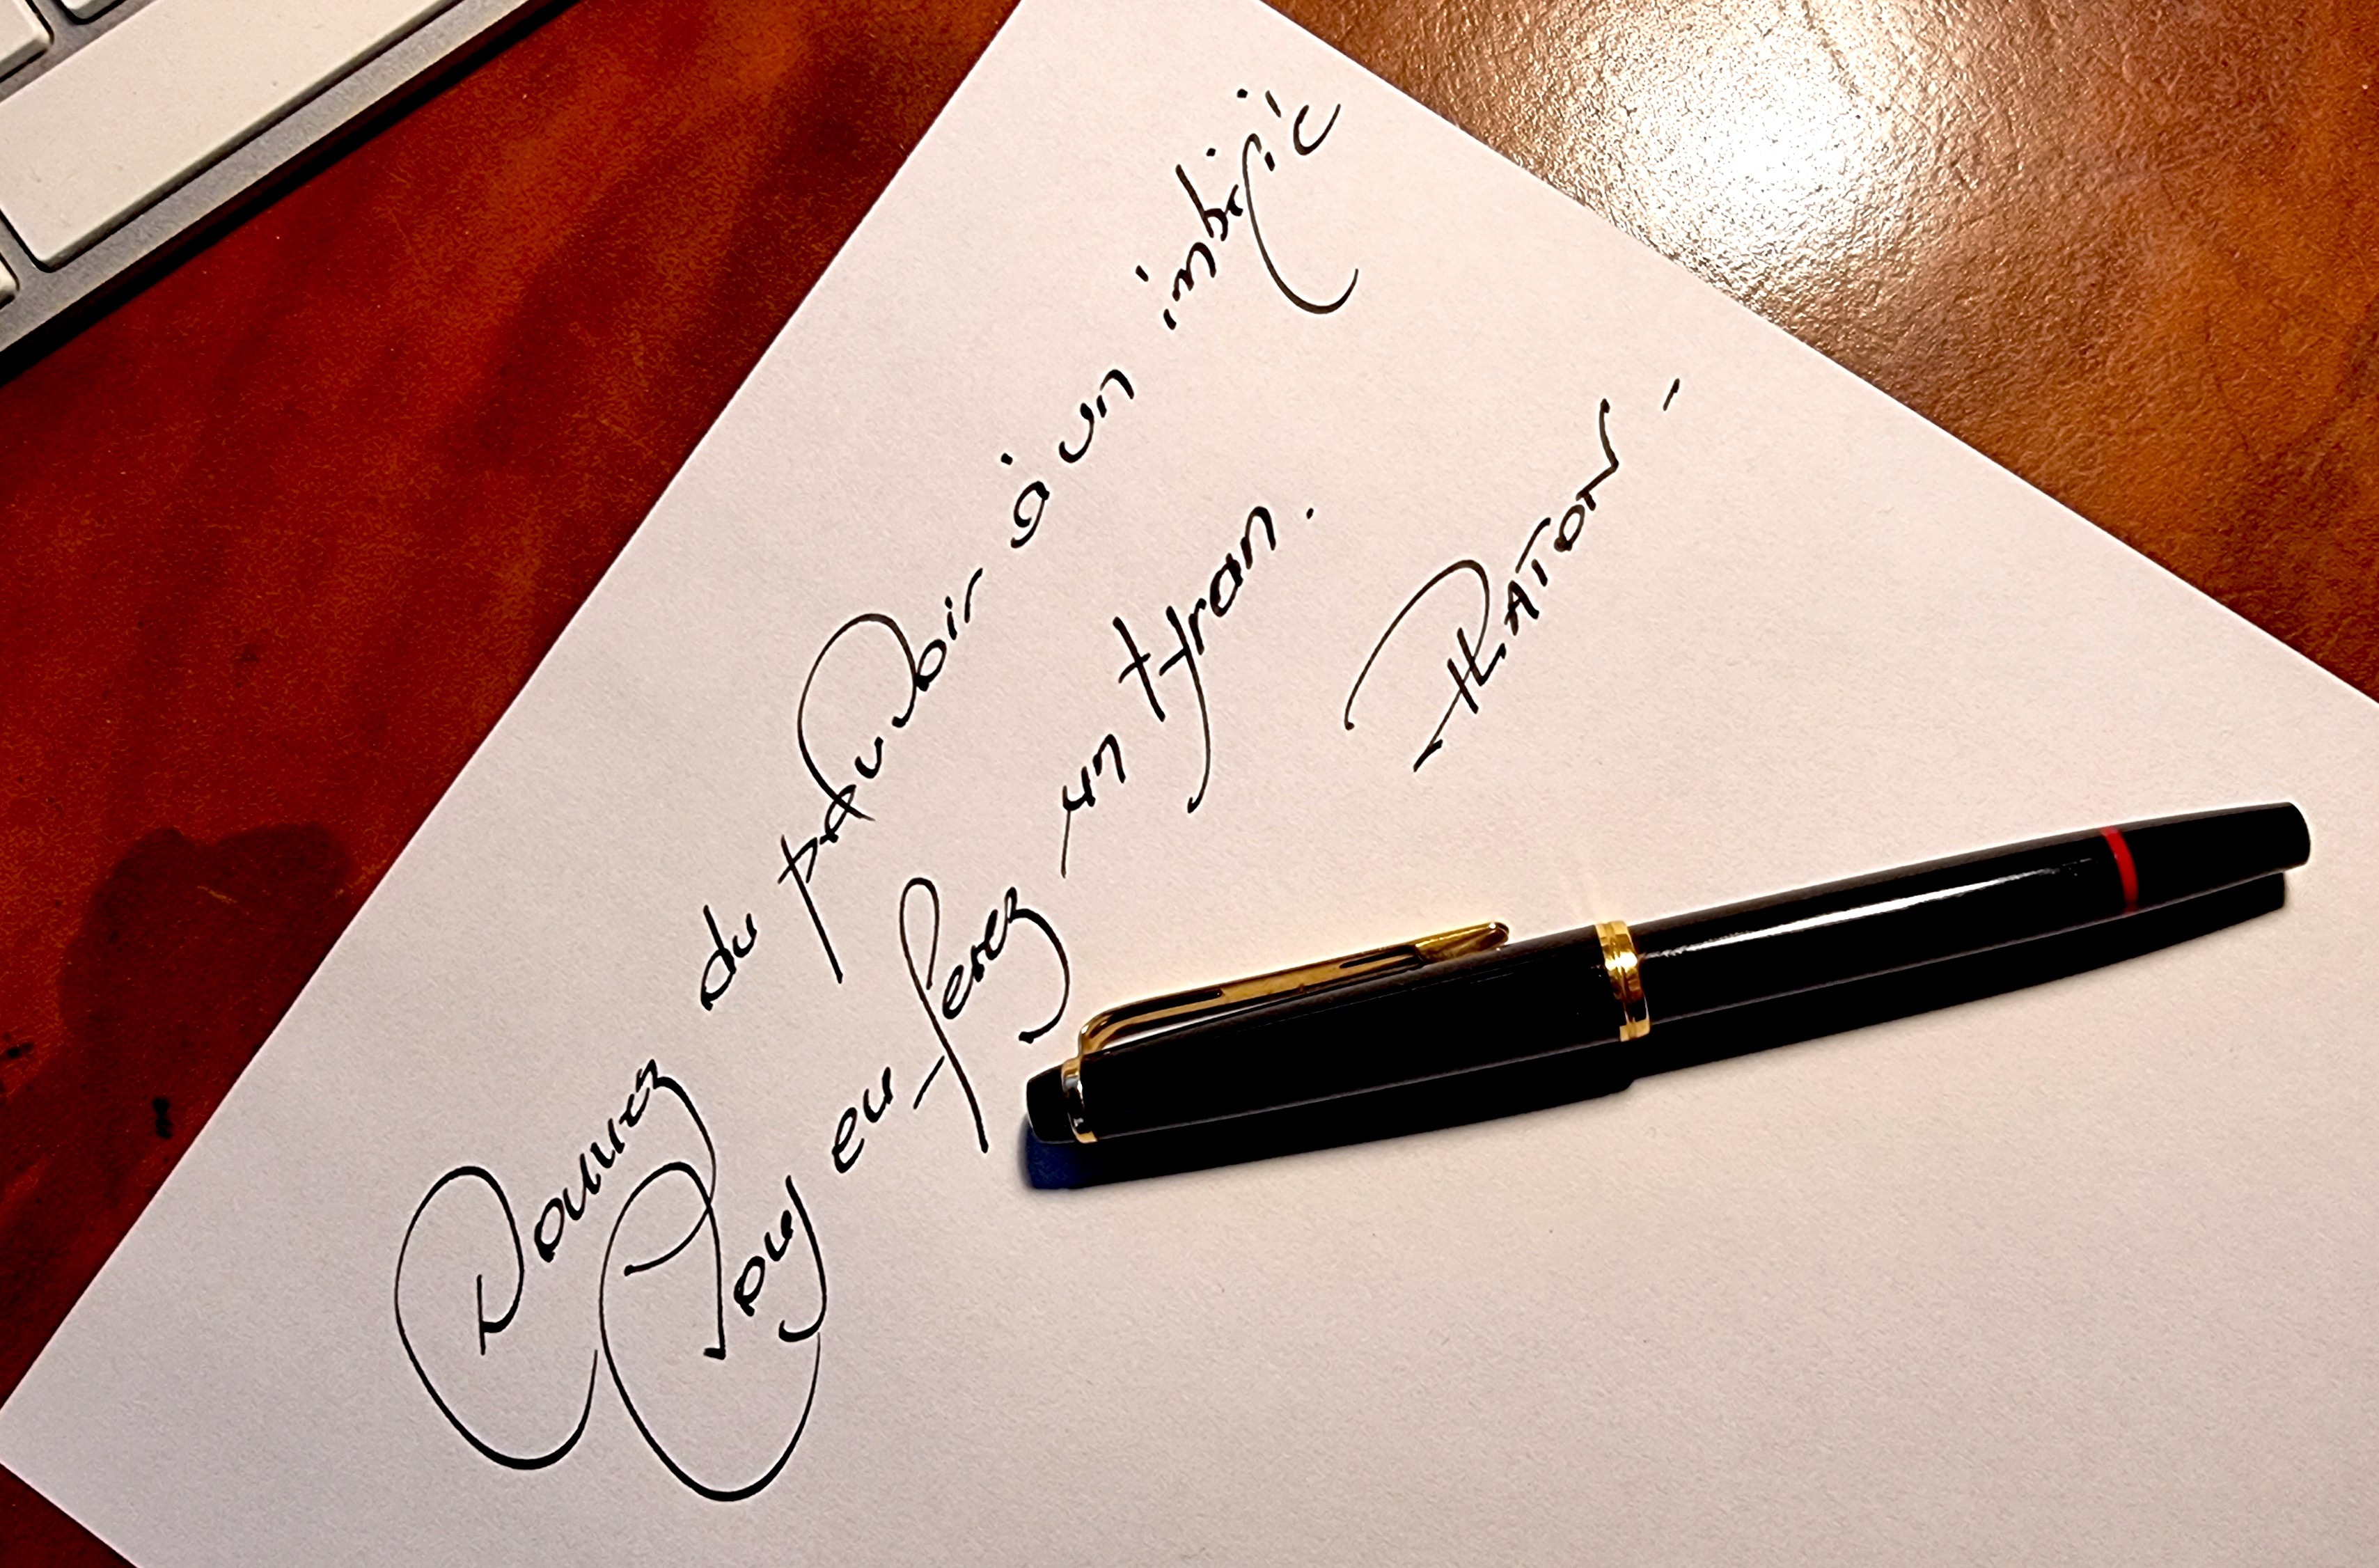 Donnez du pouvoir à un imbécile
Vous en ferez un tyran.
PLATON -